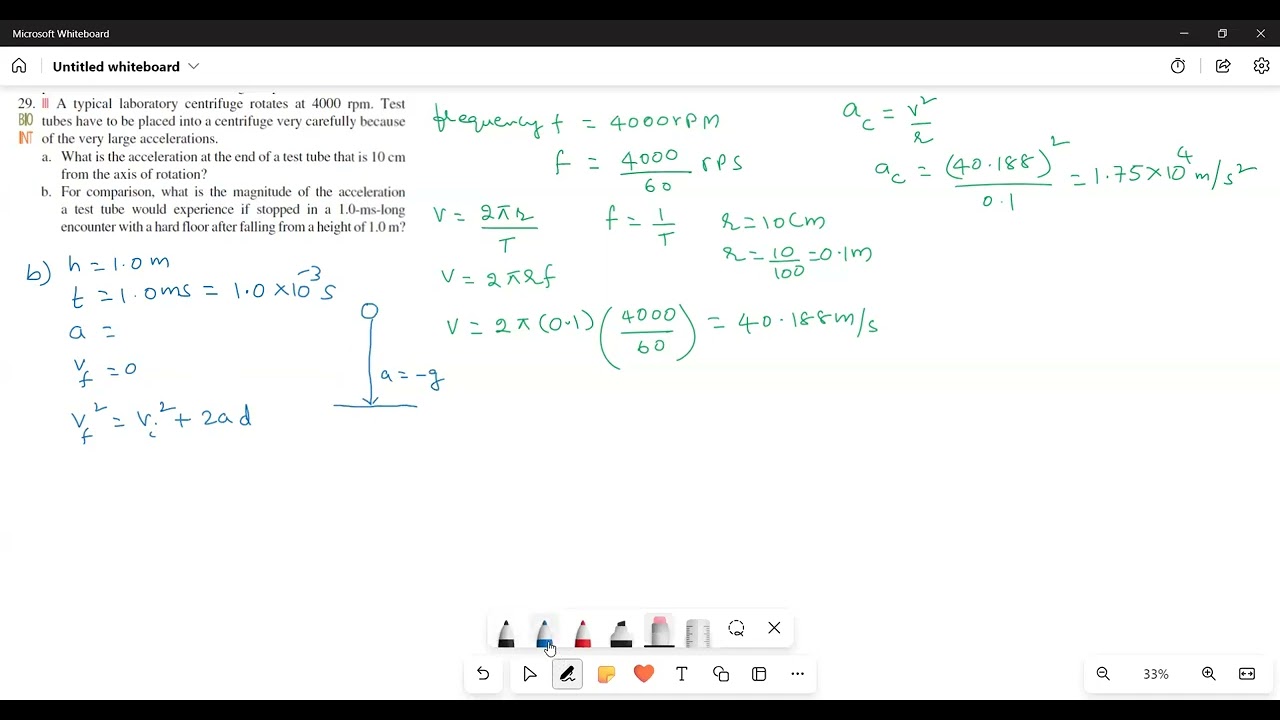 Microsoft Whiteboard
Untitled whiteboard
29. III A typical laboratory centrifuge rotates at 4000 rpm. Test
BIO tubes have to be placed into a centrifuge very carefully because
INT of the very large accelerations.
a. What is the acceleration at the end of a test tube that is 10 cm
from the axis of rotation?
b. For comparison, what is the magnitude of the acceleration
a test tube would experience if stopped in a 1.0-ms-long
encounter with a hard floor after falling from a height of 1.0 m?
b) h = 1.0 m
t = 1.0 ms = 1.0 × 10⁻³ s
a =
v_f = 0
v_f² = v_i² + 2ad
a = -g
frequency f = 4000 rPM
f = 4000/60 rPS
v = 2πr/T
f = 1/T
r = 10 Cm
r = 10/100 = 0.1 m
v = 2πrf
v = 2π(0.1)(4000/60) = 40.188 m/s
a_c = v²/r
a_c = (40.188)²/0.1 = 1.75 × 10⁴ m/s²
T
33%